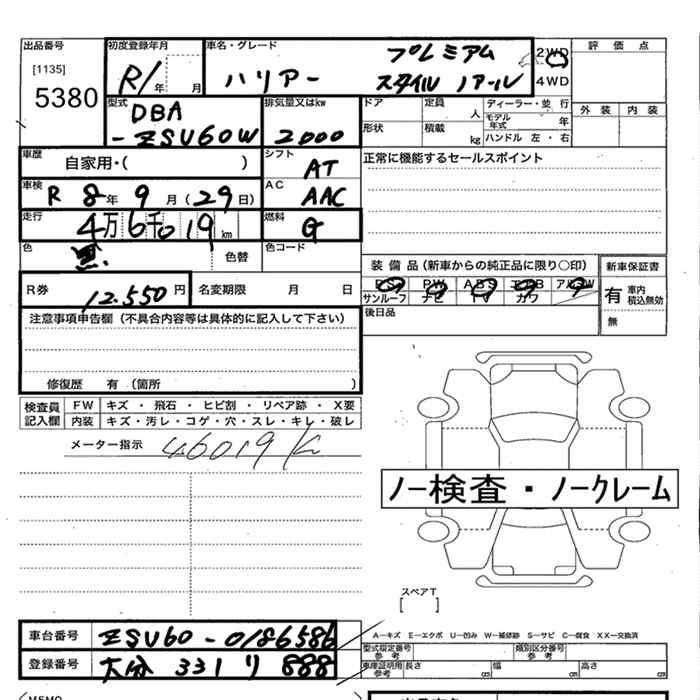 出品番号
[1135]
5380
初度登録年月
R1/ 年 月
車名・グレード
プレミアム
ハリアー スタイル ノアール
2WD
4WD
評価点
外装 内装
型式
DBA
-ZSU60W
排気量又はkw
2000
ドア 定員 人
形状 積載 kg
ディーラー・並行
モデル年式 年
ハンドル 左・右
車歴
自家用・( )
シフト
AT
正常に機能するセールスポイント
車検
R 8年 9月(29日)
AC
AAC
走行
4万6千019km
燃料
G
色
黒
色替
色コード
装備品(新車からの純正品に限り○印)
新車保証書
PS PW ABS エアB アルミW
サンルーフ ナビ TV カワ
有 車内積込無効
無
R券
12,550円
名変期限 月 日
後日品
注意事項申告欄(不具合内容等は具体的に記入して下さい)
修復歴 有(箇所 )
検査員記入欄
FW キズ・飛石・ヒビ割・リペア跡・X要
内装 キズ・汚レ・コゲ・穴・スレ・キレ・破レ
メーター指示 46019K
ノー検査・ノークレーム
スペアT
[ ]
車台番号 ZSU60-0186586
登録番号 大分 331 り 888
A−キズ E−エクボ U−凹み W−補修跡 S−サビ C−腐食 XX−交換済
型式指定番号 参考
類別区分番号 参考
車庫証明用 参考 長さ cm 幅 cm 高さ cm
MEMO